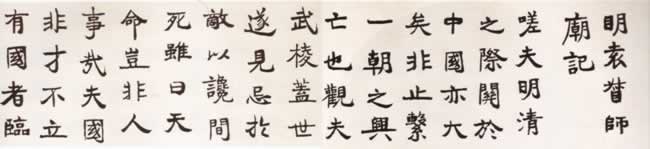 明袁督師
廟記
嗟夫明清
之際關於
中國亦大
矣非止繫
一朝之興
亡也觀夫
武棱蓋世
遂見忌於
敵以讒間
死雖曰天
命豈非人
事哉夫國
非才不立
有國者臨